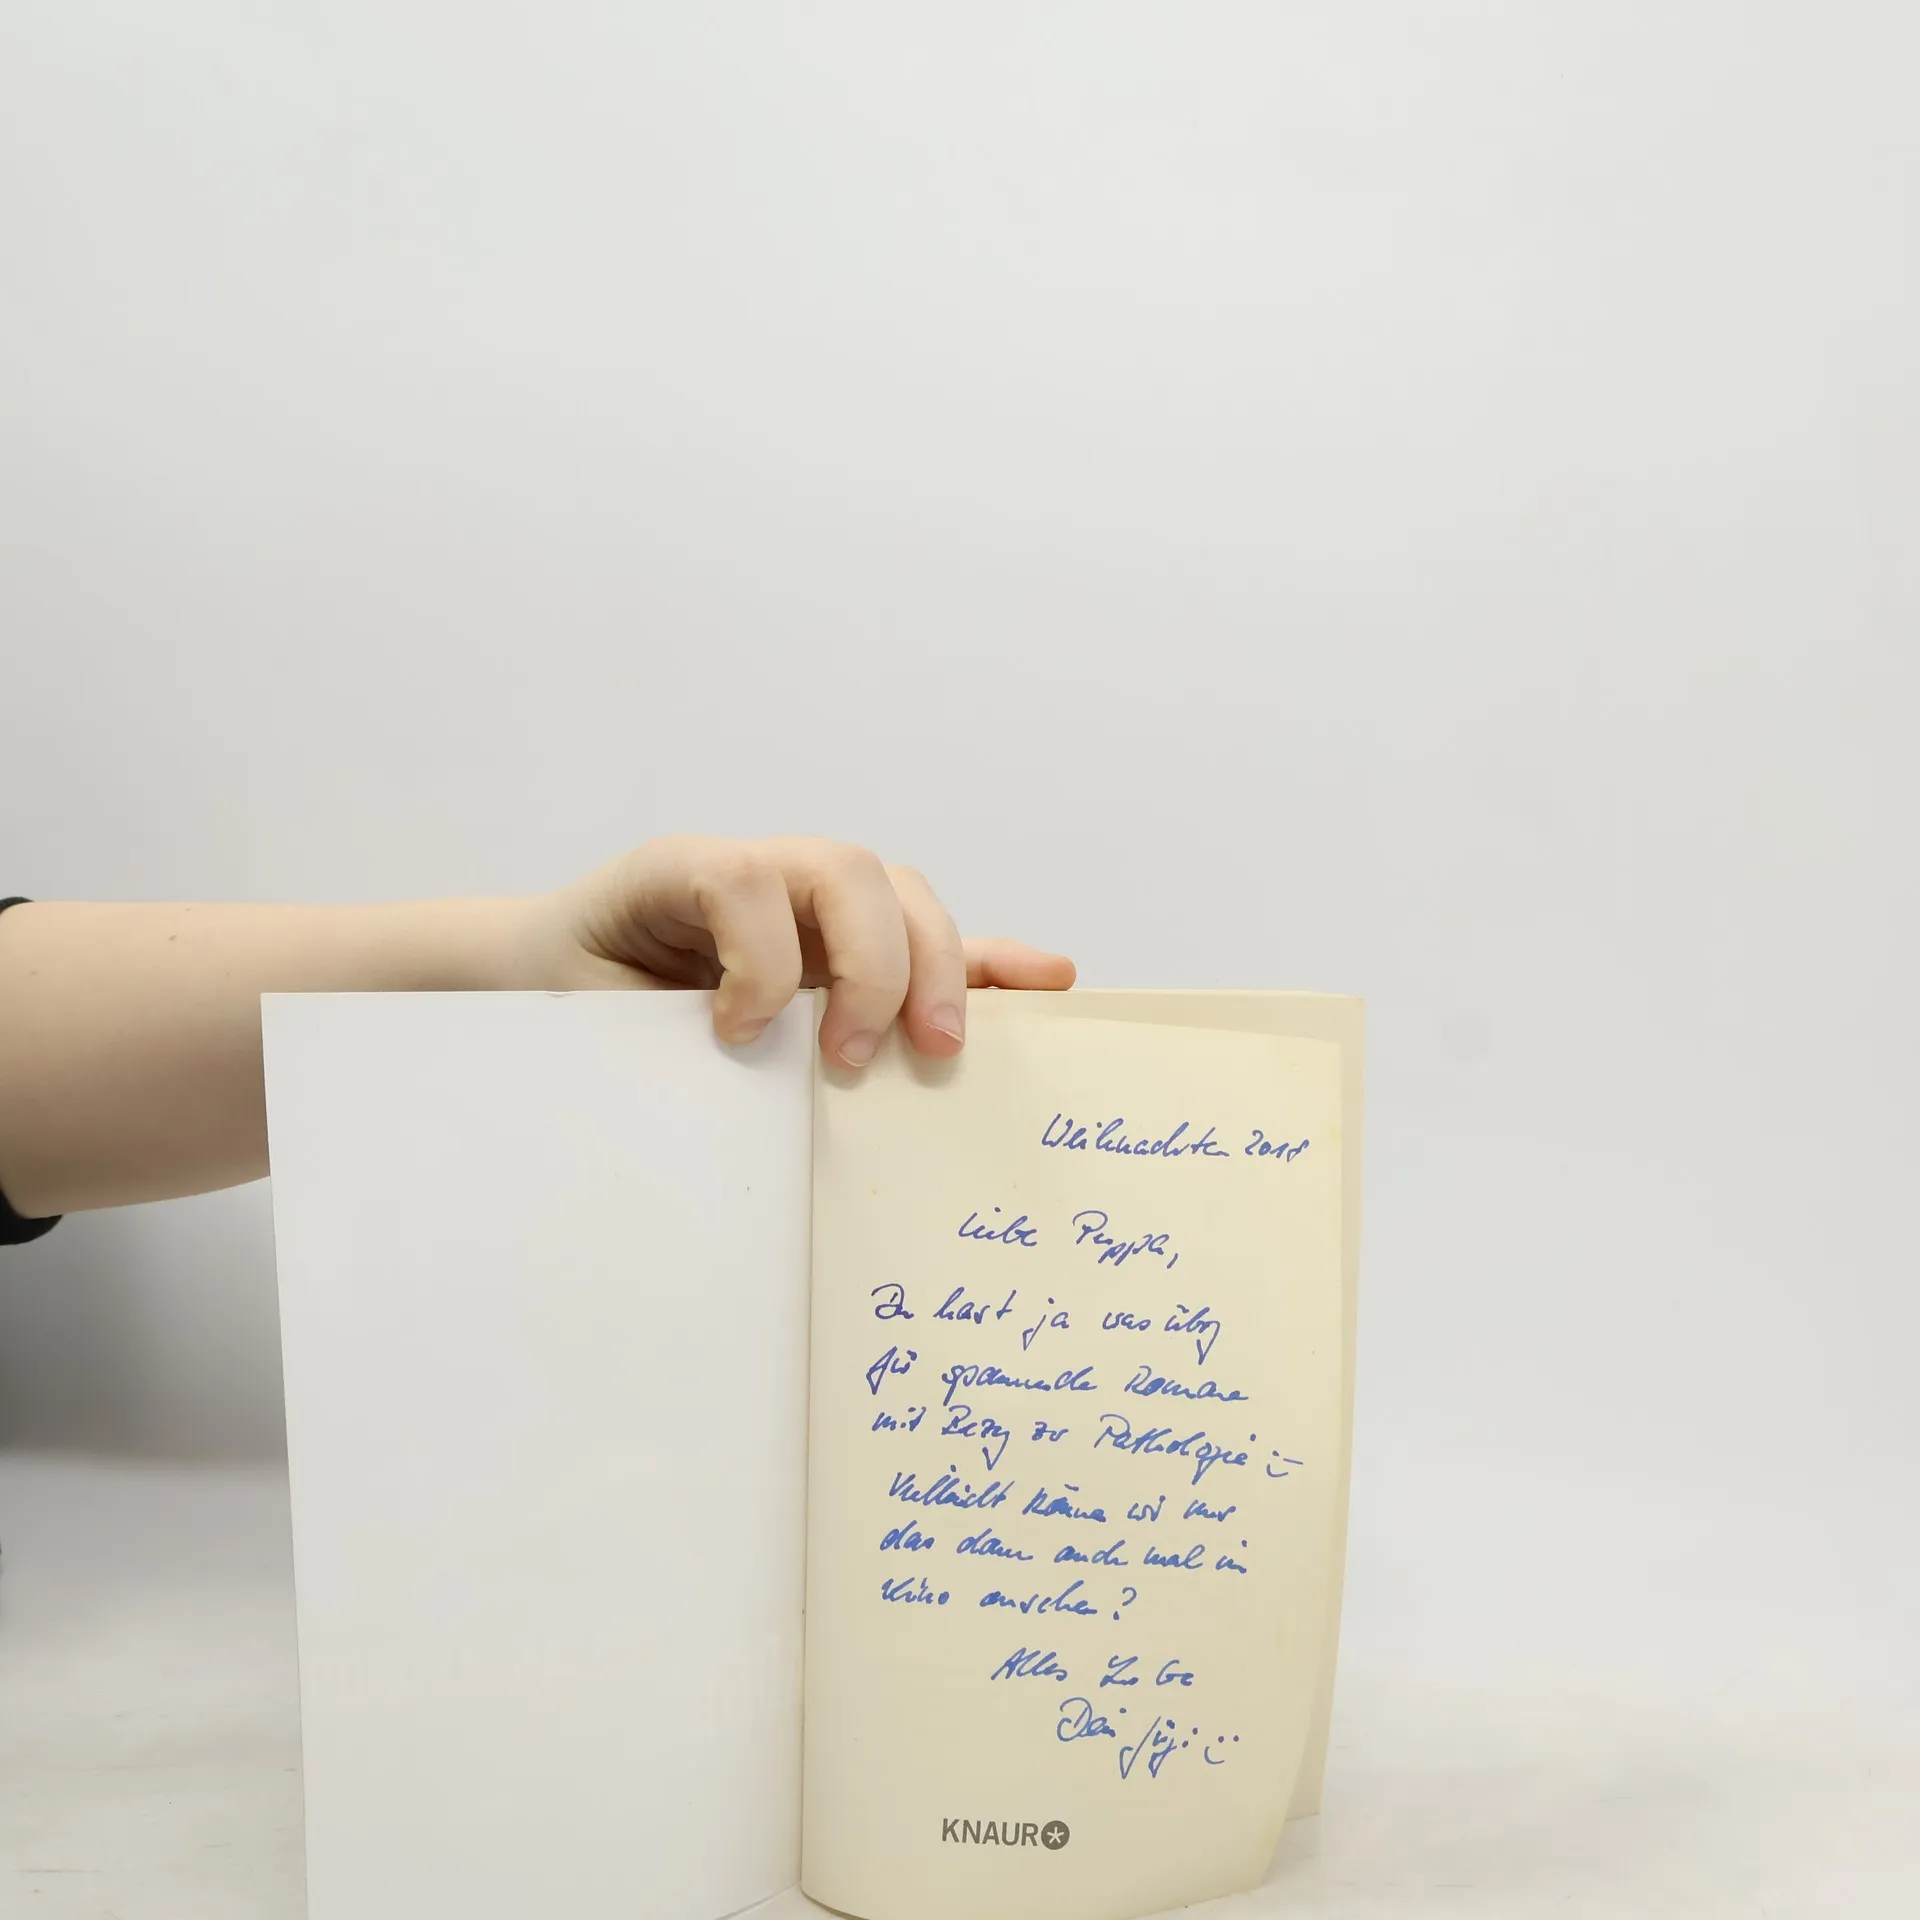 Weihnachten 2018
Liebe Puppa,
Du hast ja was übrig
für spannende Romane
mit Bezug zur Pathologie :-)
Vielleicht können wir uns
das dann auch mal im
Kino ansehen?
Alles Liebe
Dein :)
KNAUR